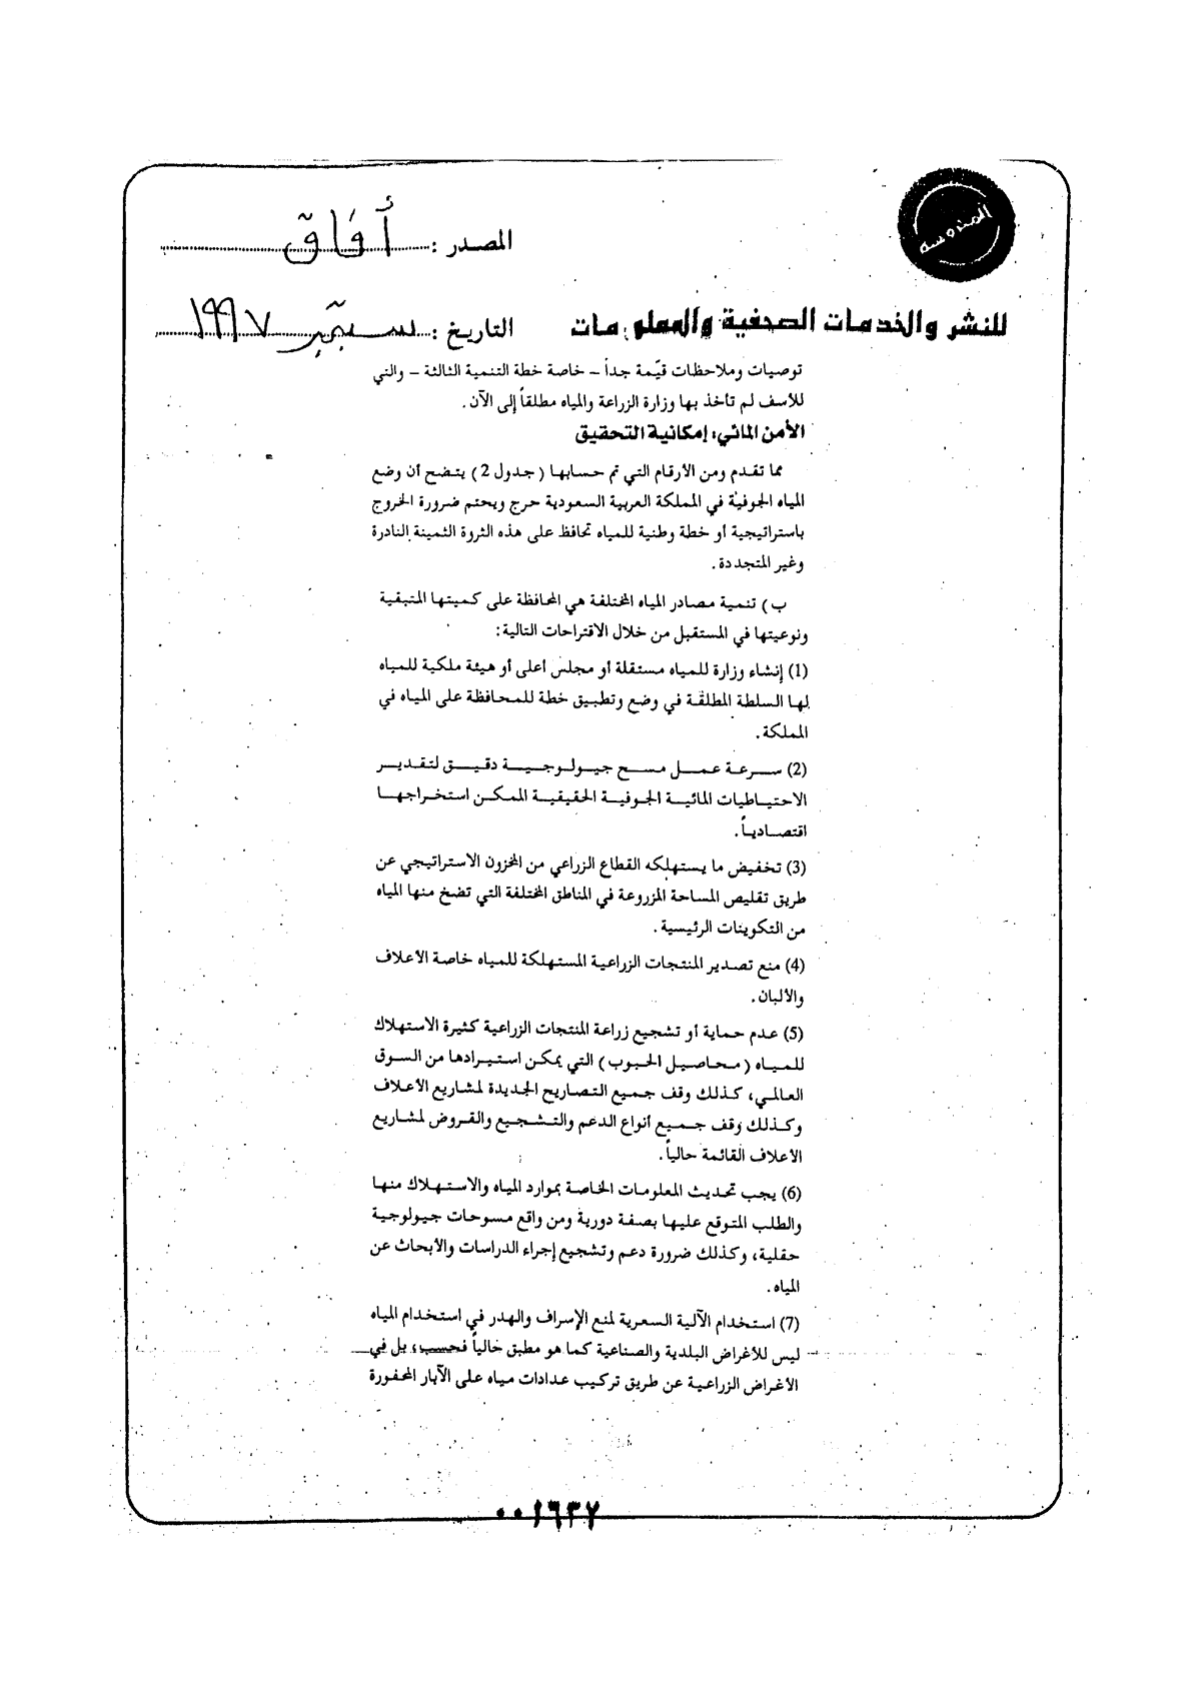 المصدر : أفاق
المحروسة
للنشر والخدمات الصحفية والمعلومات
التاريخ : سبتمبر ١٩٩٧
توصيات وملاحظات قيّمة جداً – خاصة خطة التنمية الثالثة – والتي
للأسف لم تأخذ بها وزارة الزراعة والمياه مطلقاً إلى الآن.
الأمن المائي: إمكانية التحقيق
مما تقدم ومن الأرقام التي تم حسابها (جدول 2) يتضح أن وضع
المياه الجوفية في المملكة العربية السعودية حرج ويحتم ضرورة الخروج
باستراتيجية أو خطة وطنية للمياه تحافظ على هذه الثروة الثمينة النادرة
وغير المتجددة.
ب) تنمية مصادر المياه المختلفة هي المحافظة على كميتها المتبقية
ونوعيتها في المستقبل من خلال الاقتراحات التالية:
(1) إنشاء وزارة للمياه مستقلة أو مجلس أعلى أو هيئة ملكية للمياه
لها السلطة المطلقة في وضع وتطبيق خطة للمحافظة على المياه في
المملكة.
(2) سرعة عمل مسح جيولوجية دقيق لتقدير
الاحتياطيات المائية الجوفية الحقيقية الممكن استخراجها
اقتصادياً.
(3) تخفيض ما يستهلكه القطاع الزراعي من المخزون الاستراتيجي عن
طريق تقليص المساحة المزروعة في المناطق المختلفة التي تضخ منها المياه
من التكوينات الرئيسية.
(4) منع تصدير المنتجات الزراعية المستهلكة للمياه خاصة الأعلاف
والألبان.
(5) عدم حماية أو تشجيع زراعة المنتجات الزراعية كثيرة الاستهلاك
للمياه (محاصيل الحبوب) التي يمكن استيرادها من السوق
العالمي، كذلك وقف جميع التصاريح الجديدة لمشاريع الأعلاف
وكذلك وقف جميع أنواع الدعم والتشجيع والقروض لمشاريع
الأعلاف القائمة حالياً.
(6) يجب تحديث المعلومات الخاصة بموارد المياه والاستهلاك منها
والطلب المتوقع عليها بصفة دورية ومن واقع مسوحات جيولوجية
حقلية، وكذلك ضرورة دعم وتشجيع إجراء الدراسات والأبحاث عن
المياه.
(7) استخدام الآلية السعرية لمنع الإسراف والهدر في استخدام المياه
ليس للأغراض البلدية والصناعية كما هو مطبق حالياً فحسب، بل في
الأغراض الزراعية عن طريق تركيب عدادات مياه على الآبار المحفورة
٠٠١٦٣٧